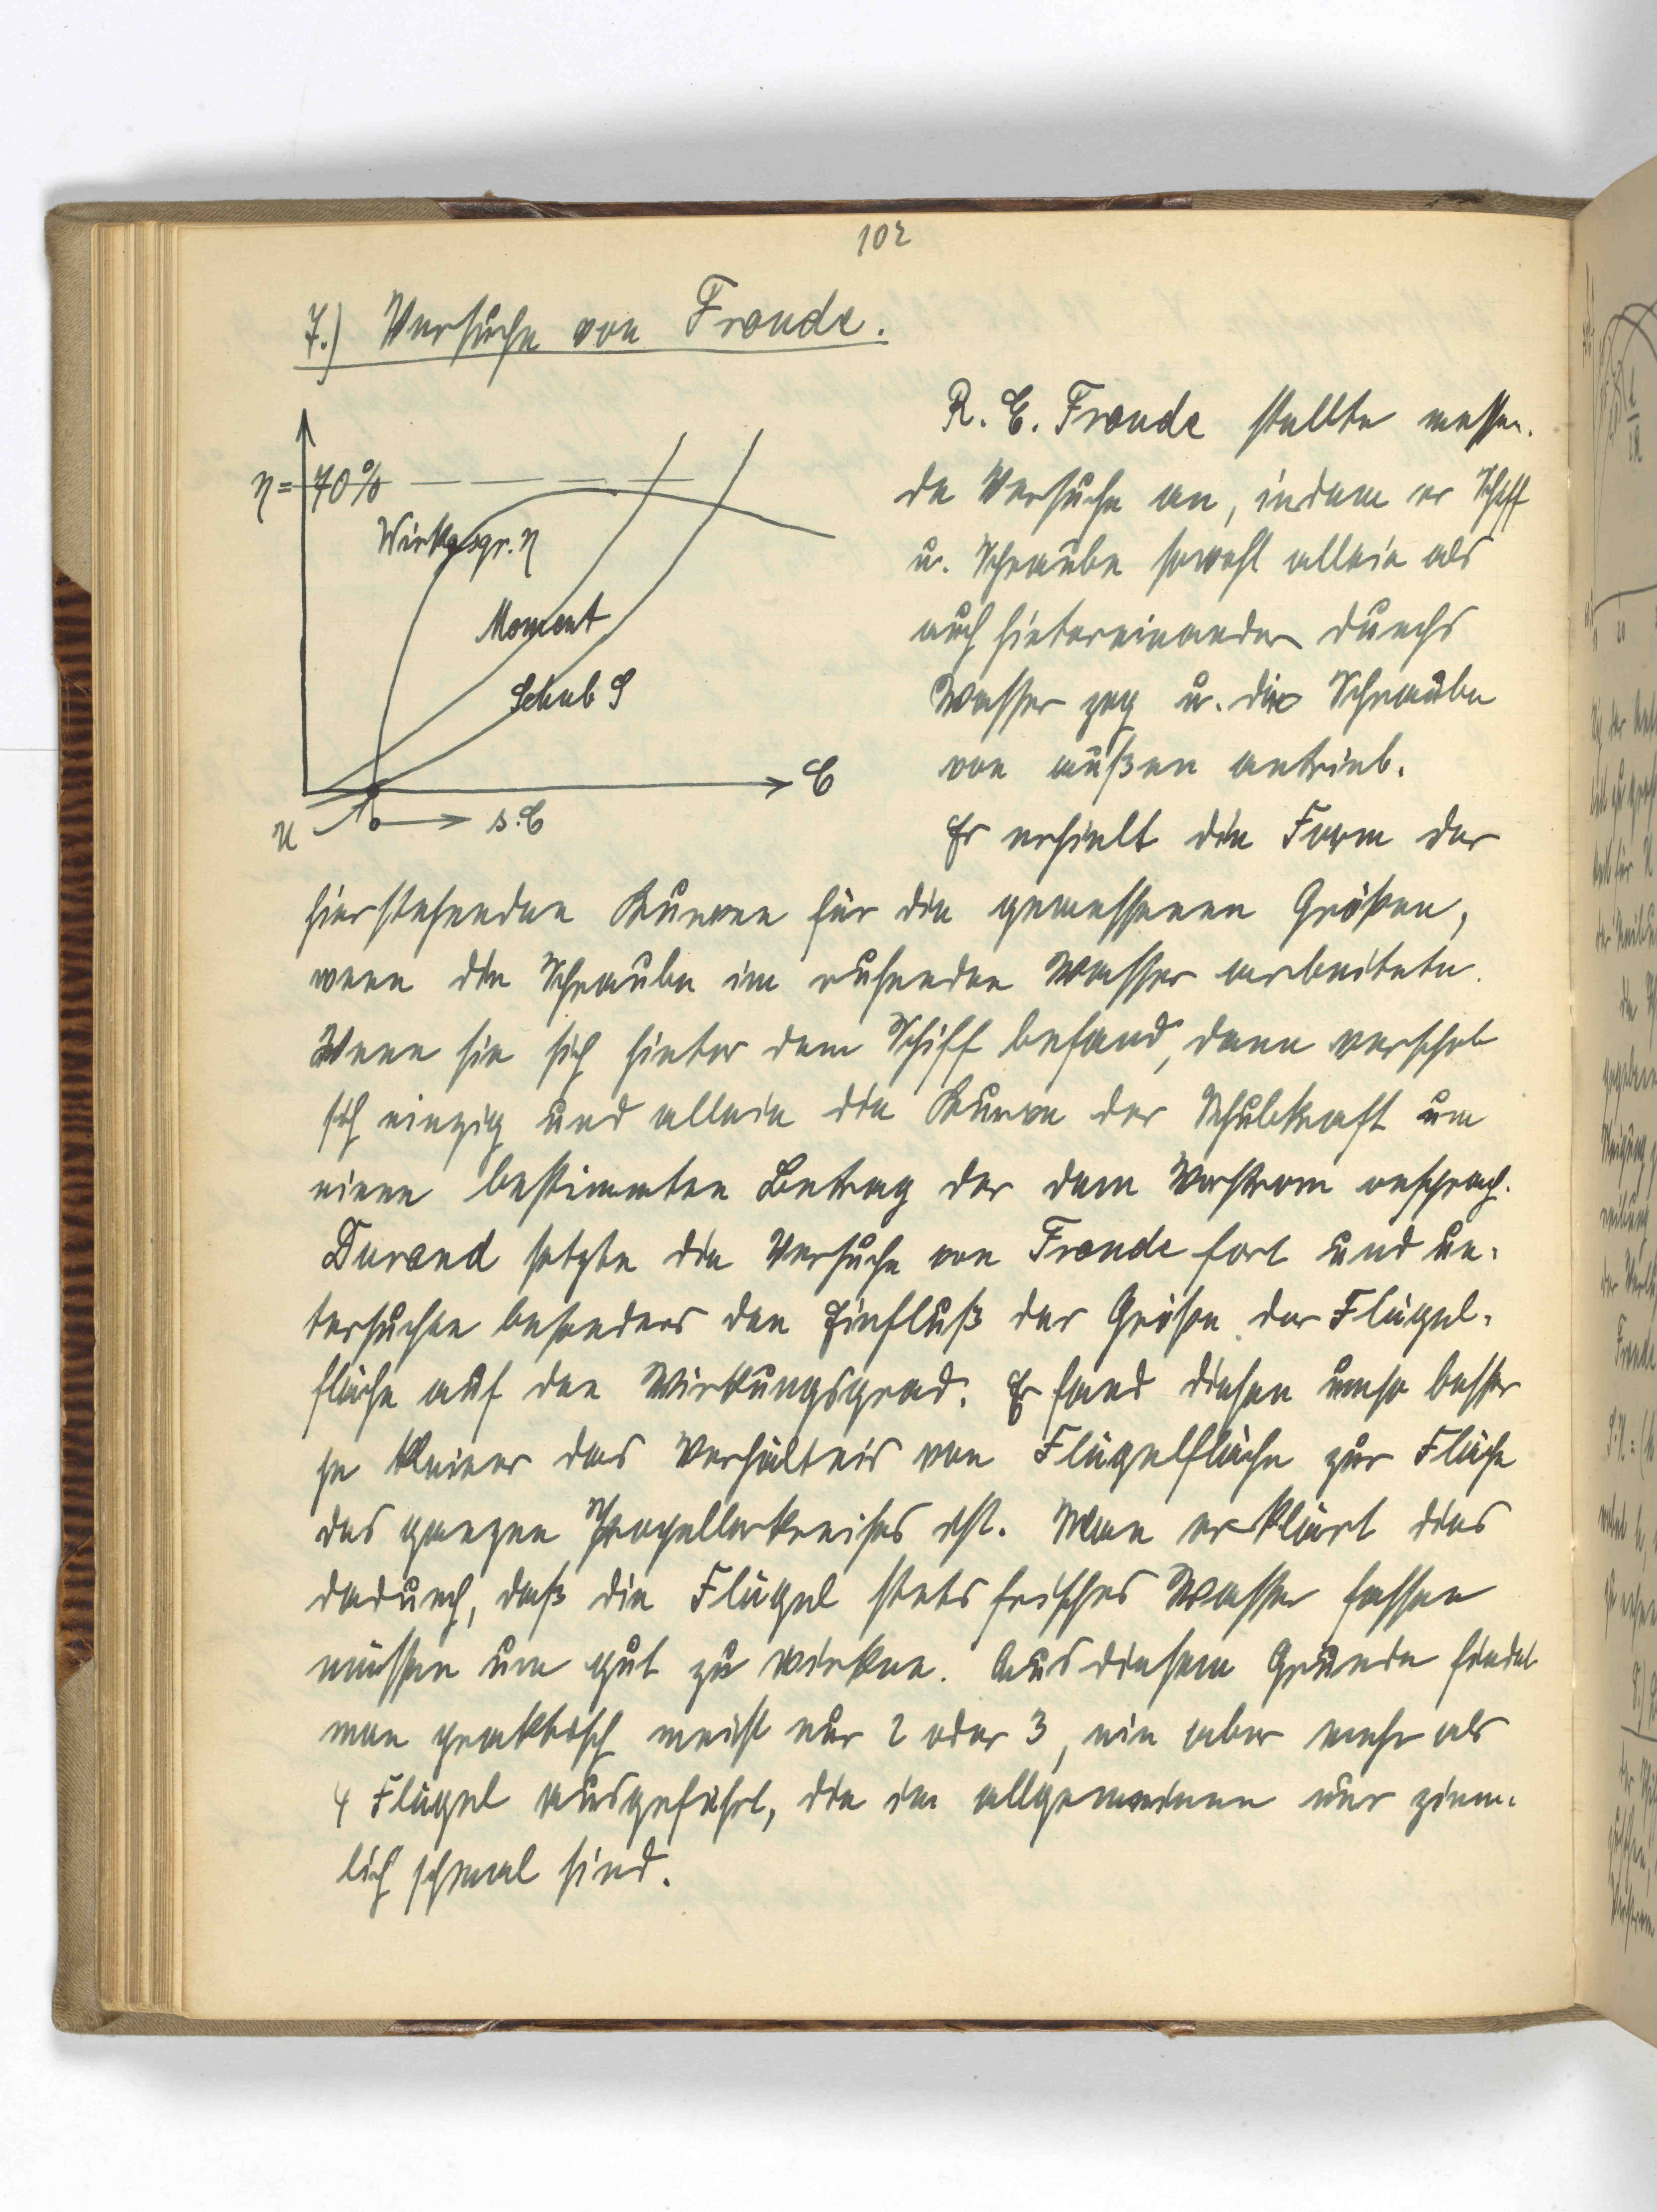 102
7.) Versuche von Froude.
R. E. Froude stellte messen-
de Versuche an, indem er Schiff
u. Schraube sowohl allein als
auch hintereinander durchs
Wasser zog u. die Schraube
von außen antrieb.
Er erhielt die Form der
η = 70%
Wirkgsgr. η
Moment
Schub S
C
u
s.C
hierstehenden Kurven für die gemessenen Größen,
wenn die Schraube im ruhenden Wasser arbeitete.
Wenn sie sich hinter dem Schiff befand, dann verschob
sich einzig und allein die Kurve der Schubkraft um
einen bestimmten Betrag der dem Vorstrom entsprach.
Durand setzte die Versuche von Froude fort und un-
tersuchte besonders den Einfluß der Größe der Flügel-
fläche auf den Wirkungsgrad. Er fand diesen umso besser
je kleiner das Verhältnis von Flügelfläche zur Fläche
des ganzen Propellerkreises ist. Man erklärt dies
dadurch, daß die Flügel stets frisches Wasser fassen
müssen um gut zu wirken. Aus diesem Grunde findet
man praktisch meist nur 2 oder 3, nie aber mehr als
4 Flügel ausgeführt, die im allgemeinen nur ziem-
lich schmal sind.